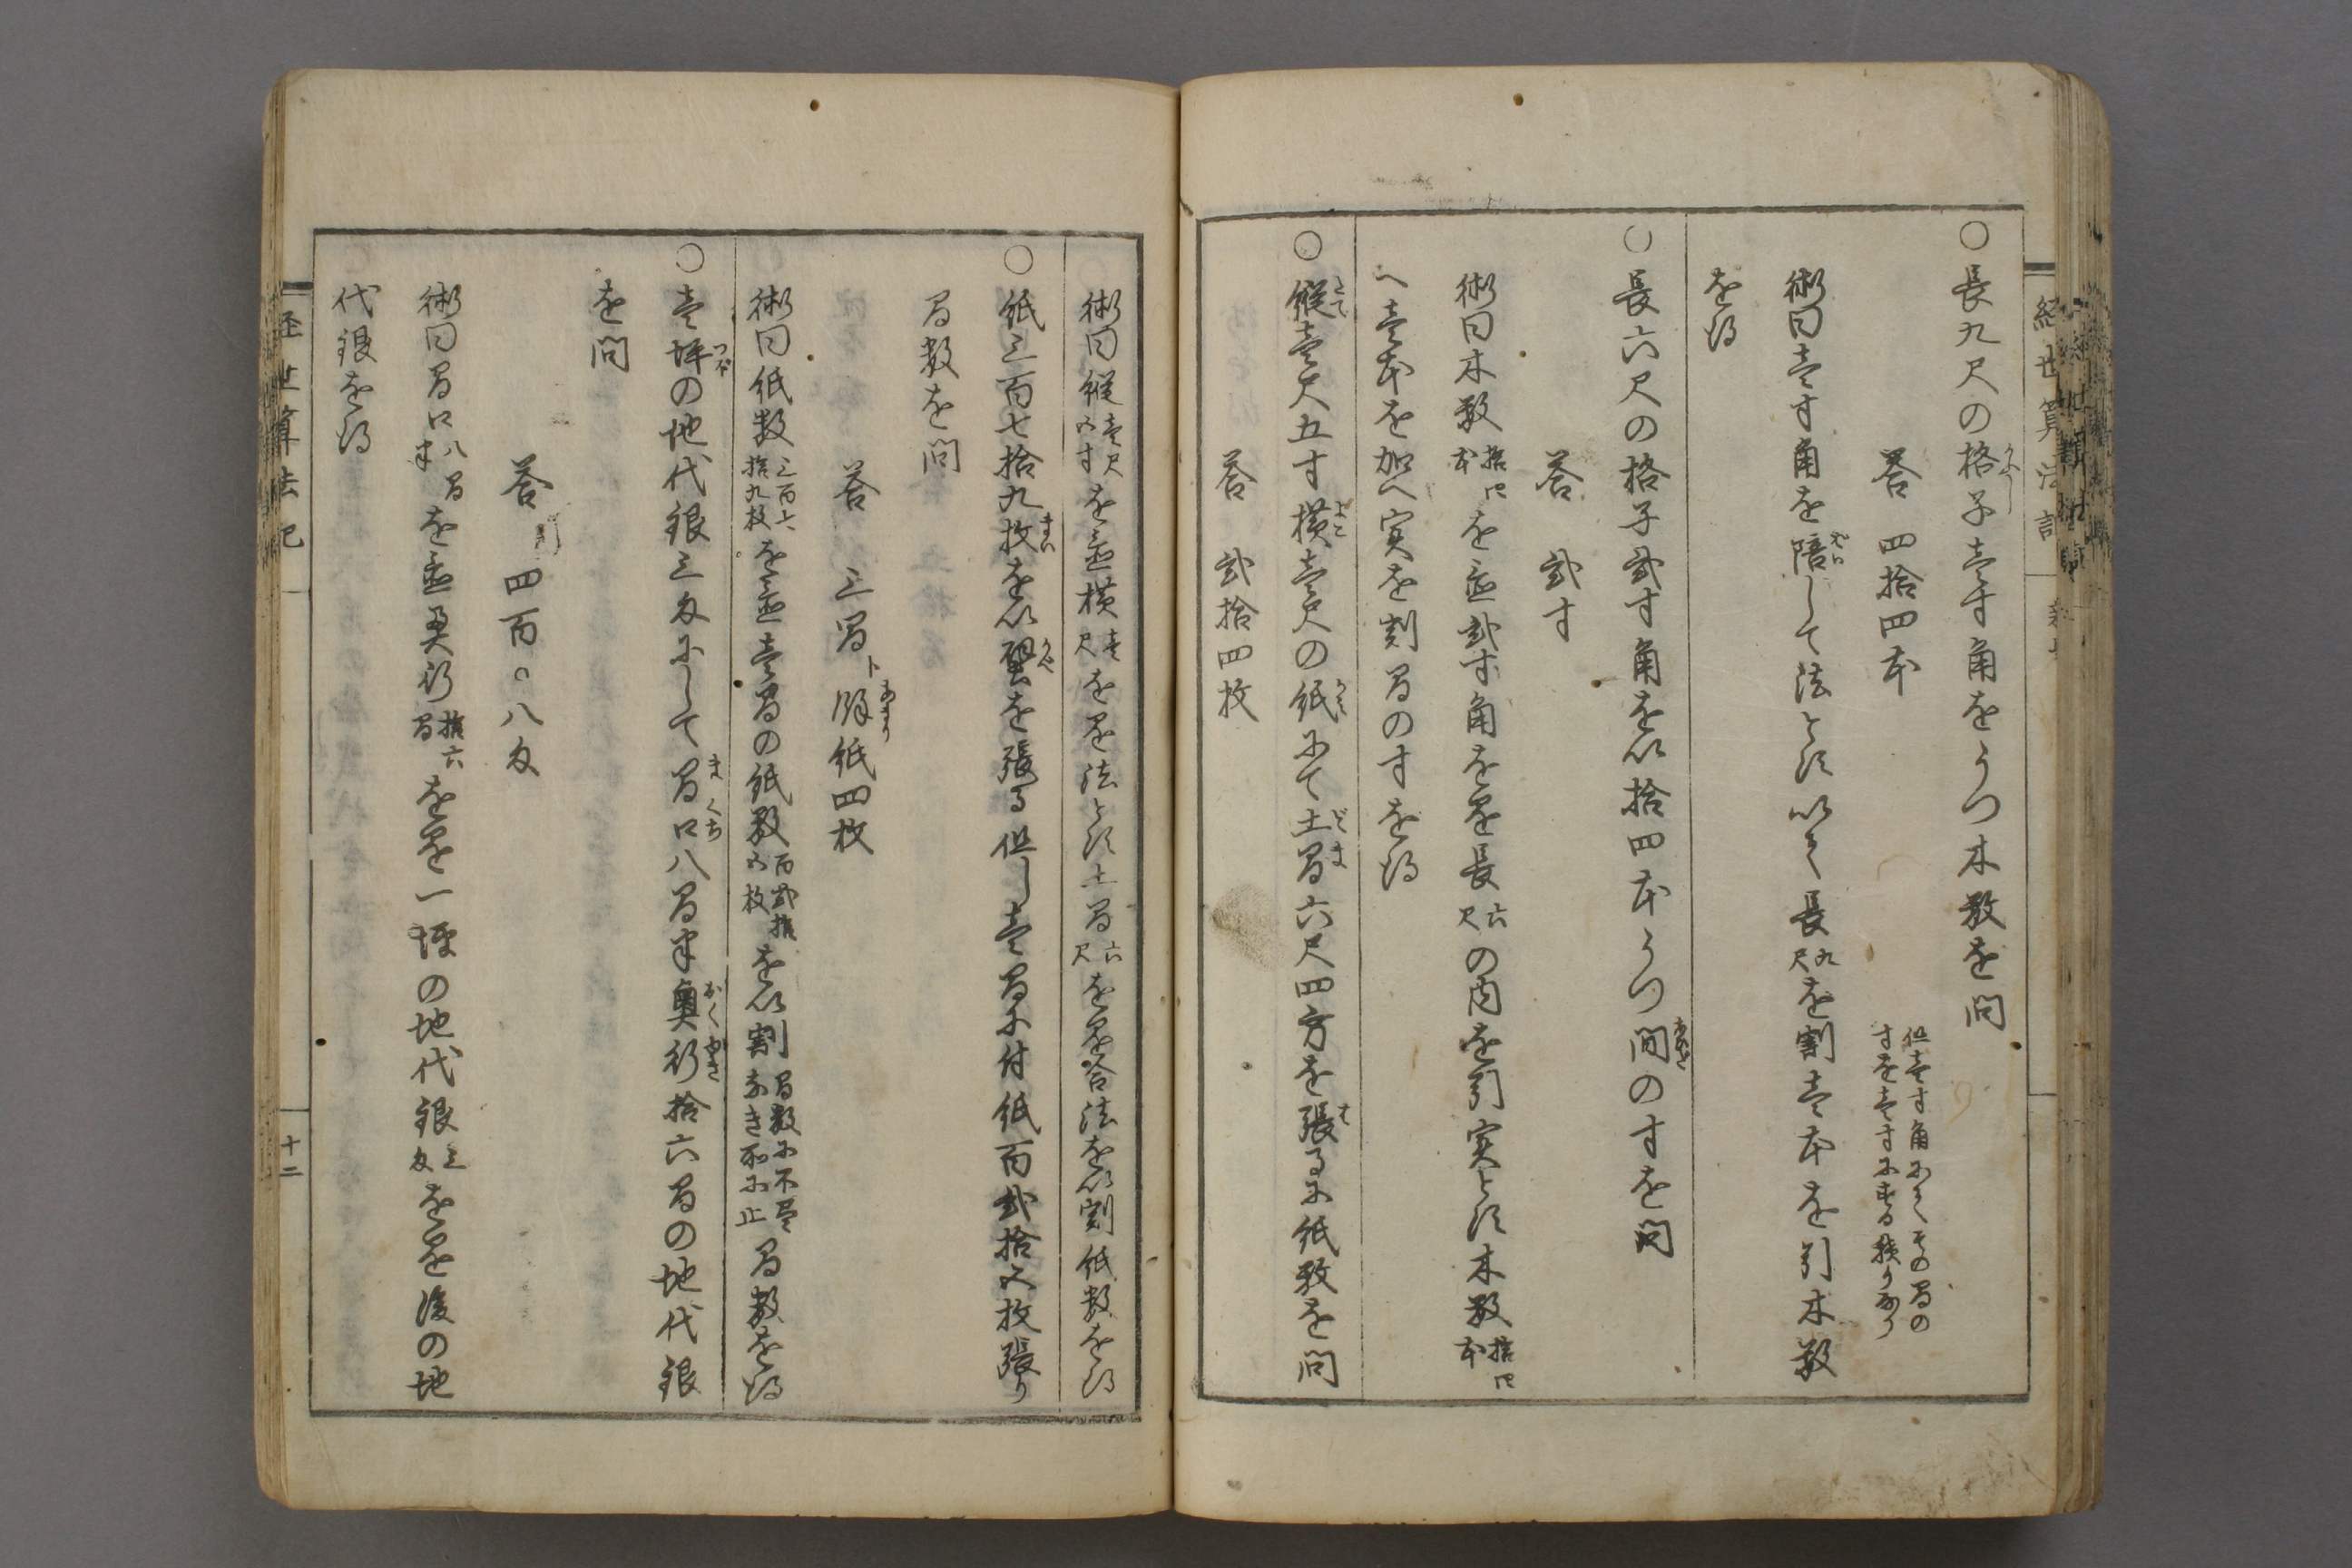 ○長九尺の格子壱寸角をうつ木数を問
答 四拾四本
但壱寸角にてその間の
寸を壱寸にする積りなり
術曰壱寸角を陪して法とす以て長九尺を割壱本を引木数
を得
○長六尺の格子弐寸角を以拾四本うつ間の寸を問
答 弐寸
術曰木数拾四本を置弐寸角を乗を長六尺の内を引実とす木数拾四本
へ壱本を加へ実を割間の寸を得
○縦壱尺五寸横壱尺の紙にて土間六尺四方を張るに紙数を問
答 弐拾四枚
経世算法記
術曰縦壱尺五寸を置横壱尺を乗法とす土間六尺を自乗法を以割紙数を得
○紙三百七拾九枚を以壁を張る但し壱間に付紙百弐拾五枚張り
間数を問
答 三間ト余り紙四枚
術曰紙数三百七拾九枚を置壱間の紙数百弐拾五枚を以割間数に不尽なき所に止間数を得
○壱坪の地代銀三匁にして間口八間半奥行拾六間の地代銀
を問
答 四百〇八匁
術曰間口八間半を置奥行拾六間を乗一坪の地代銀三匁を乗後の地
代銀を得
経世算法記
十二